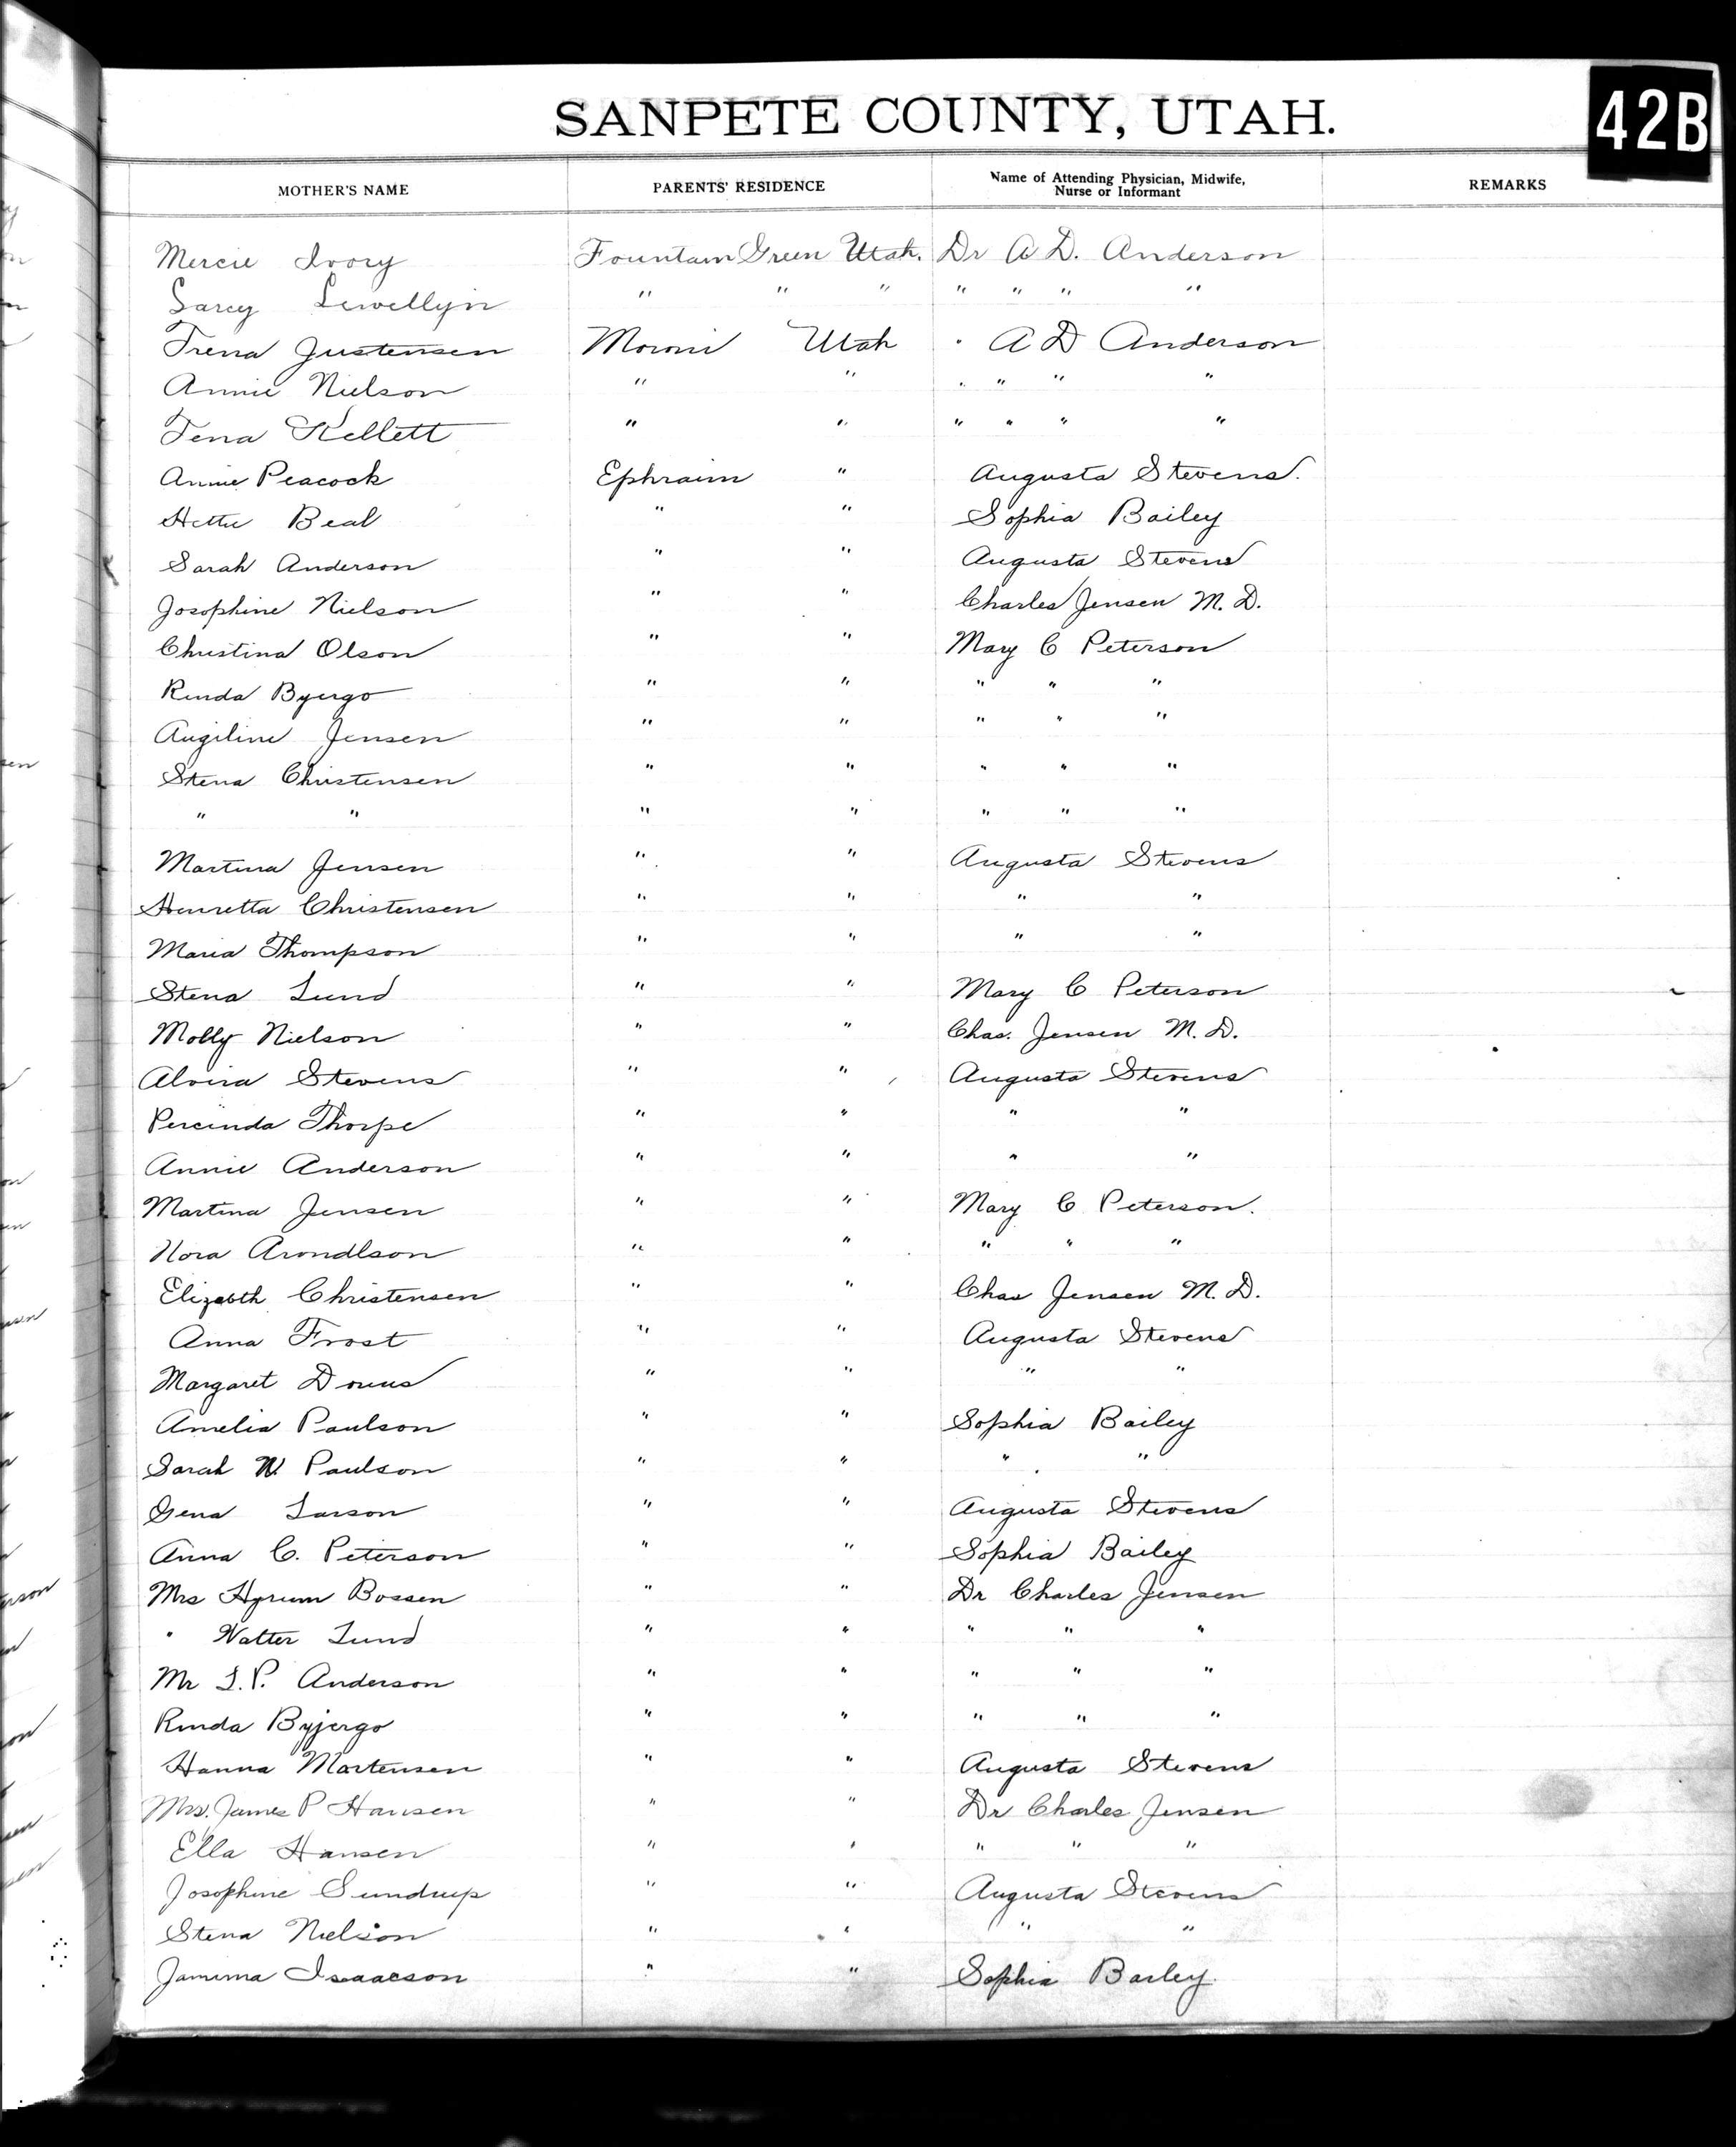 SANPETE COUNTY, UTAH.
42B
MOTHER'S NAME PARENTS' RESIDENCE Name of Attending Physician, Midwife, Nurse or Informant REMARKS
Mercie Ivory Fountain Green Utah. Dr A D. Anderson
Sarey Lewellyn " " " " " " "
Trena Justensen Moroni Utah " A D Anderson
Annie Nielson " " " " " "
Tena Kellett " " " " " "
Annie Peacock Ephraim " Augusta Stevens.
Hettie Beal " " Sophia Bailey
Sarah Anderson " " Augusta Stevens
Josophine Nielson " " Charles Jensen M. D.
Christina Olson " " Mary C Peterson
Rinda Byergo " " " " "
Angiline Jensen " " " " "
Stena Christensen " " " " "
" " " " " " "
Martina Jensen " " Augusta Stevens
Henretta Christensen " " " "
Maria Thompson " " " "
Stena Lund " " Mary C Peterson
Molly Nielson " " Chas. Jensen M. D.
Alvira Stevens " " Augusta Stevens
Percinda Thorpe " " " "
Annie Anderson " " " "
Martina Jensen " " Mary C Peterson.
Nora Arondlson " " " " "
Elizabth Christensen " " Chas Jensen M. D.
Anna Frost " " Augusta Stevens
Margaret Dorius " " " "
Amelia Paulson " " Sophia Bailey
Sarah W. Paulson " " " "
Gena Larson " " Augusta Stevens
Anna C. Peterson " " Sophia Bailey
Mrs Hyrum Bossen " " Dr Charles Jensen
" Walter Lund " " " " "
Mr L. P. Anderson " " " " "
Rinda Byjergo " " " " "
Hanna Mortensen " " Augusta Stevens
Mrs. James P Hansen " " Dr Charles Jensen
Ella Hansen " " " " "
Josophine Sundrup " " Augusta Stevens
Stena Nielson " " " "
Jamima Isaacson " " Sophia Barley.